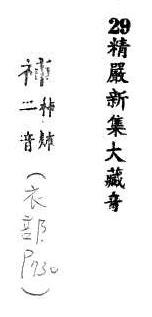 29精嚴新集大藏音
二音（衣部P730）